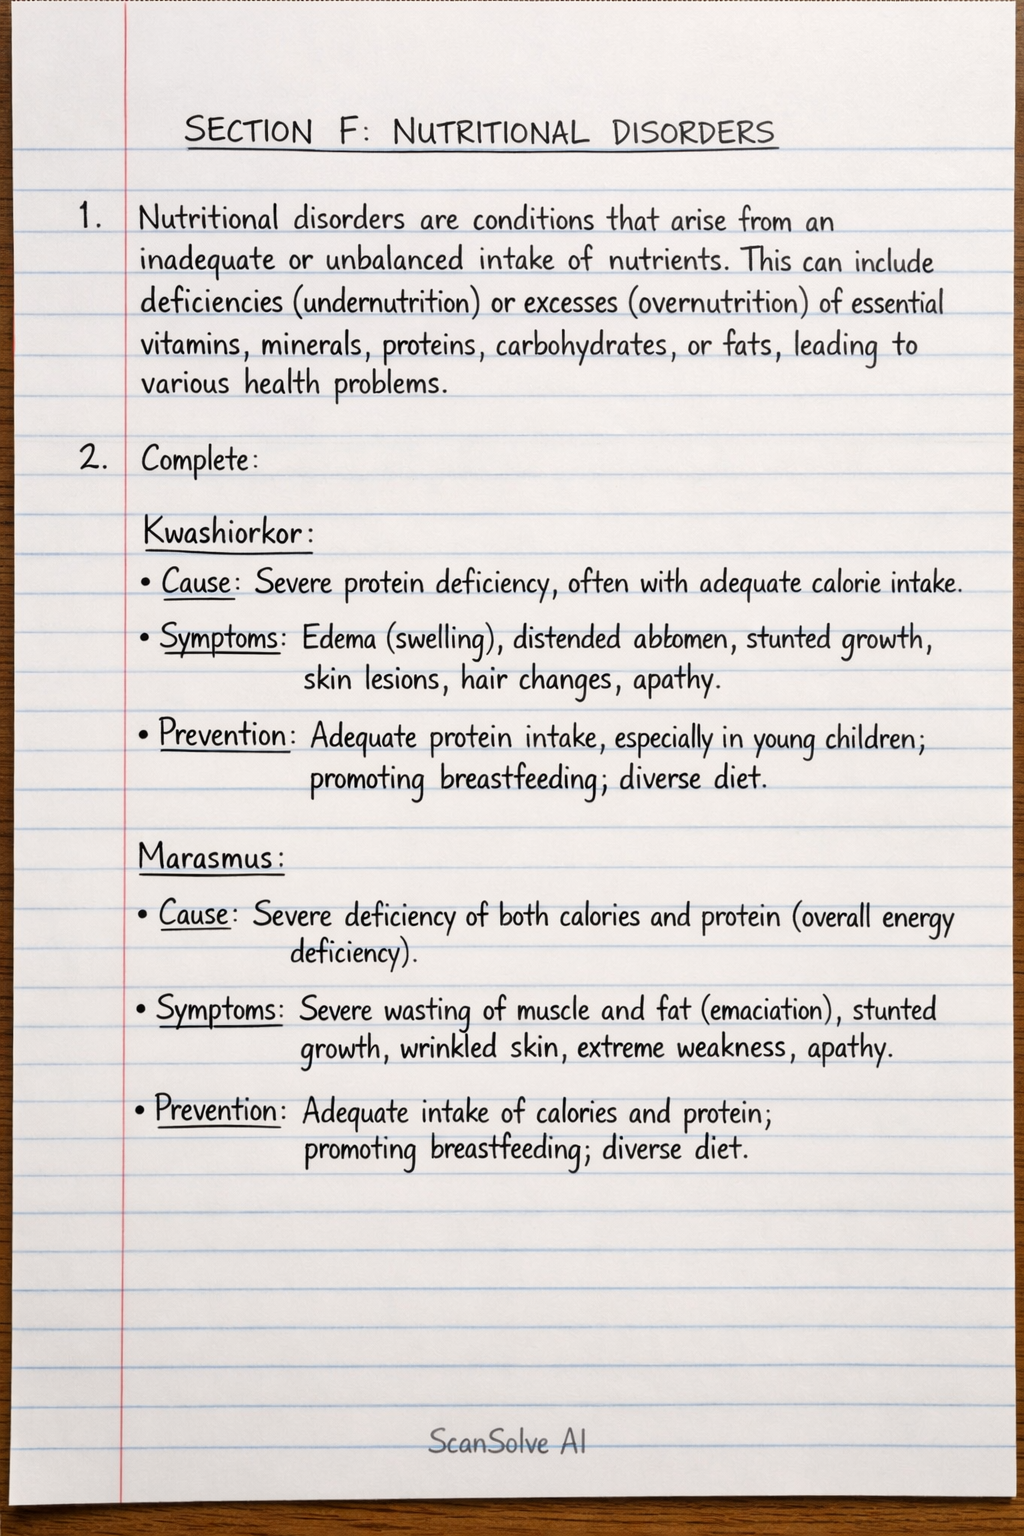 SECTION F: NUTRITIONAL DISORDERS
1. Nutritional disorders are conditions that arise from an
inadequate or unbalanced intake of nutrients. This can include
deficiencies (undernutrition) or excesses (overnutrition) of essential
vitamins, minerals, proteins, carbohydrates, or fats, leading to
various health problems.
2. Complete:
Kwashiorkor:
• Cause: Severe protein deficiency, often with adequate calorie intake.
• Symptoms: Edema (swelling), distended abbomen, stunted growth,
skin lesions, hair changes, apathy.
• Prevention: Adequate protein intake, especially in young children;
promoting breastfeeding; diverse diet.
Marasmus:
• Cause: Severe deficiency of both calories and protein (overall energy
deficiency).
• Symptoms: Severe wasting of muscle and fat (emaciation), stunted
growth, wrinkled skin, extreme weakness, apathy.
• Prevention: Adequate intake of calories and protein;
promoting breastfeeding; diverse diet.
ScanSolve AI